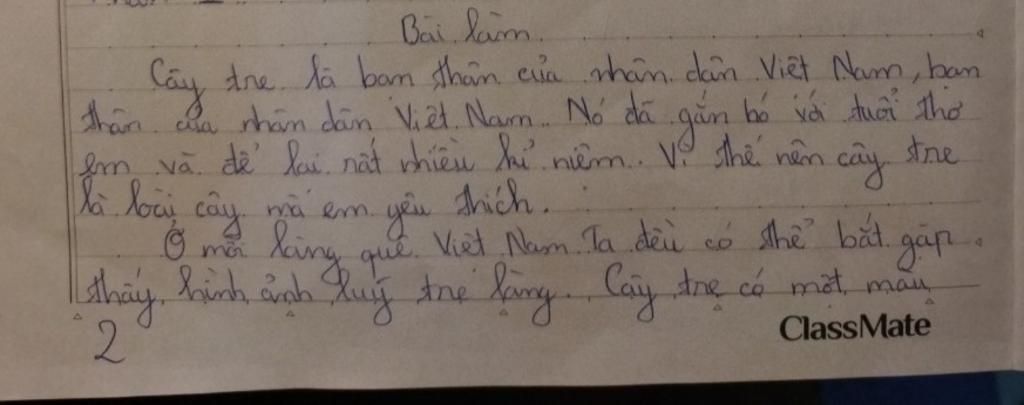 Bài làm
Cây tre là bạn thân của nhân dân Việt Nam, bạn
thân của nhân dân Việt Nam. Nó đã gắn bó với tuổi thơ
em và để lại rất nhiều kỉ niệm. Vì thế nên cây tre
là loài cây mà em yêu thích.
Ở mỗi làng quê Việt Nam Ta đều có thể bắt gặp
thấy hình ảnh luỹ tre làng. Cây tre có một màu
2
ClassMate